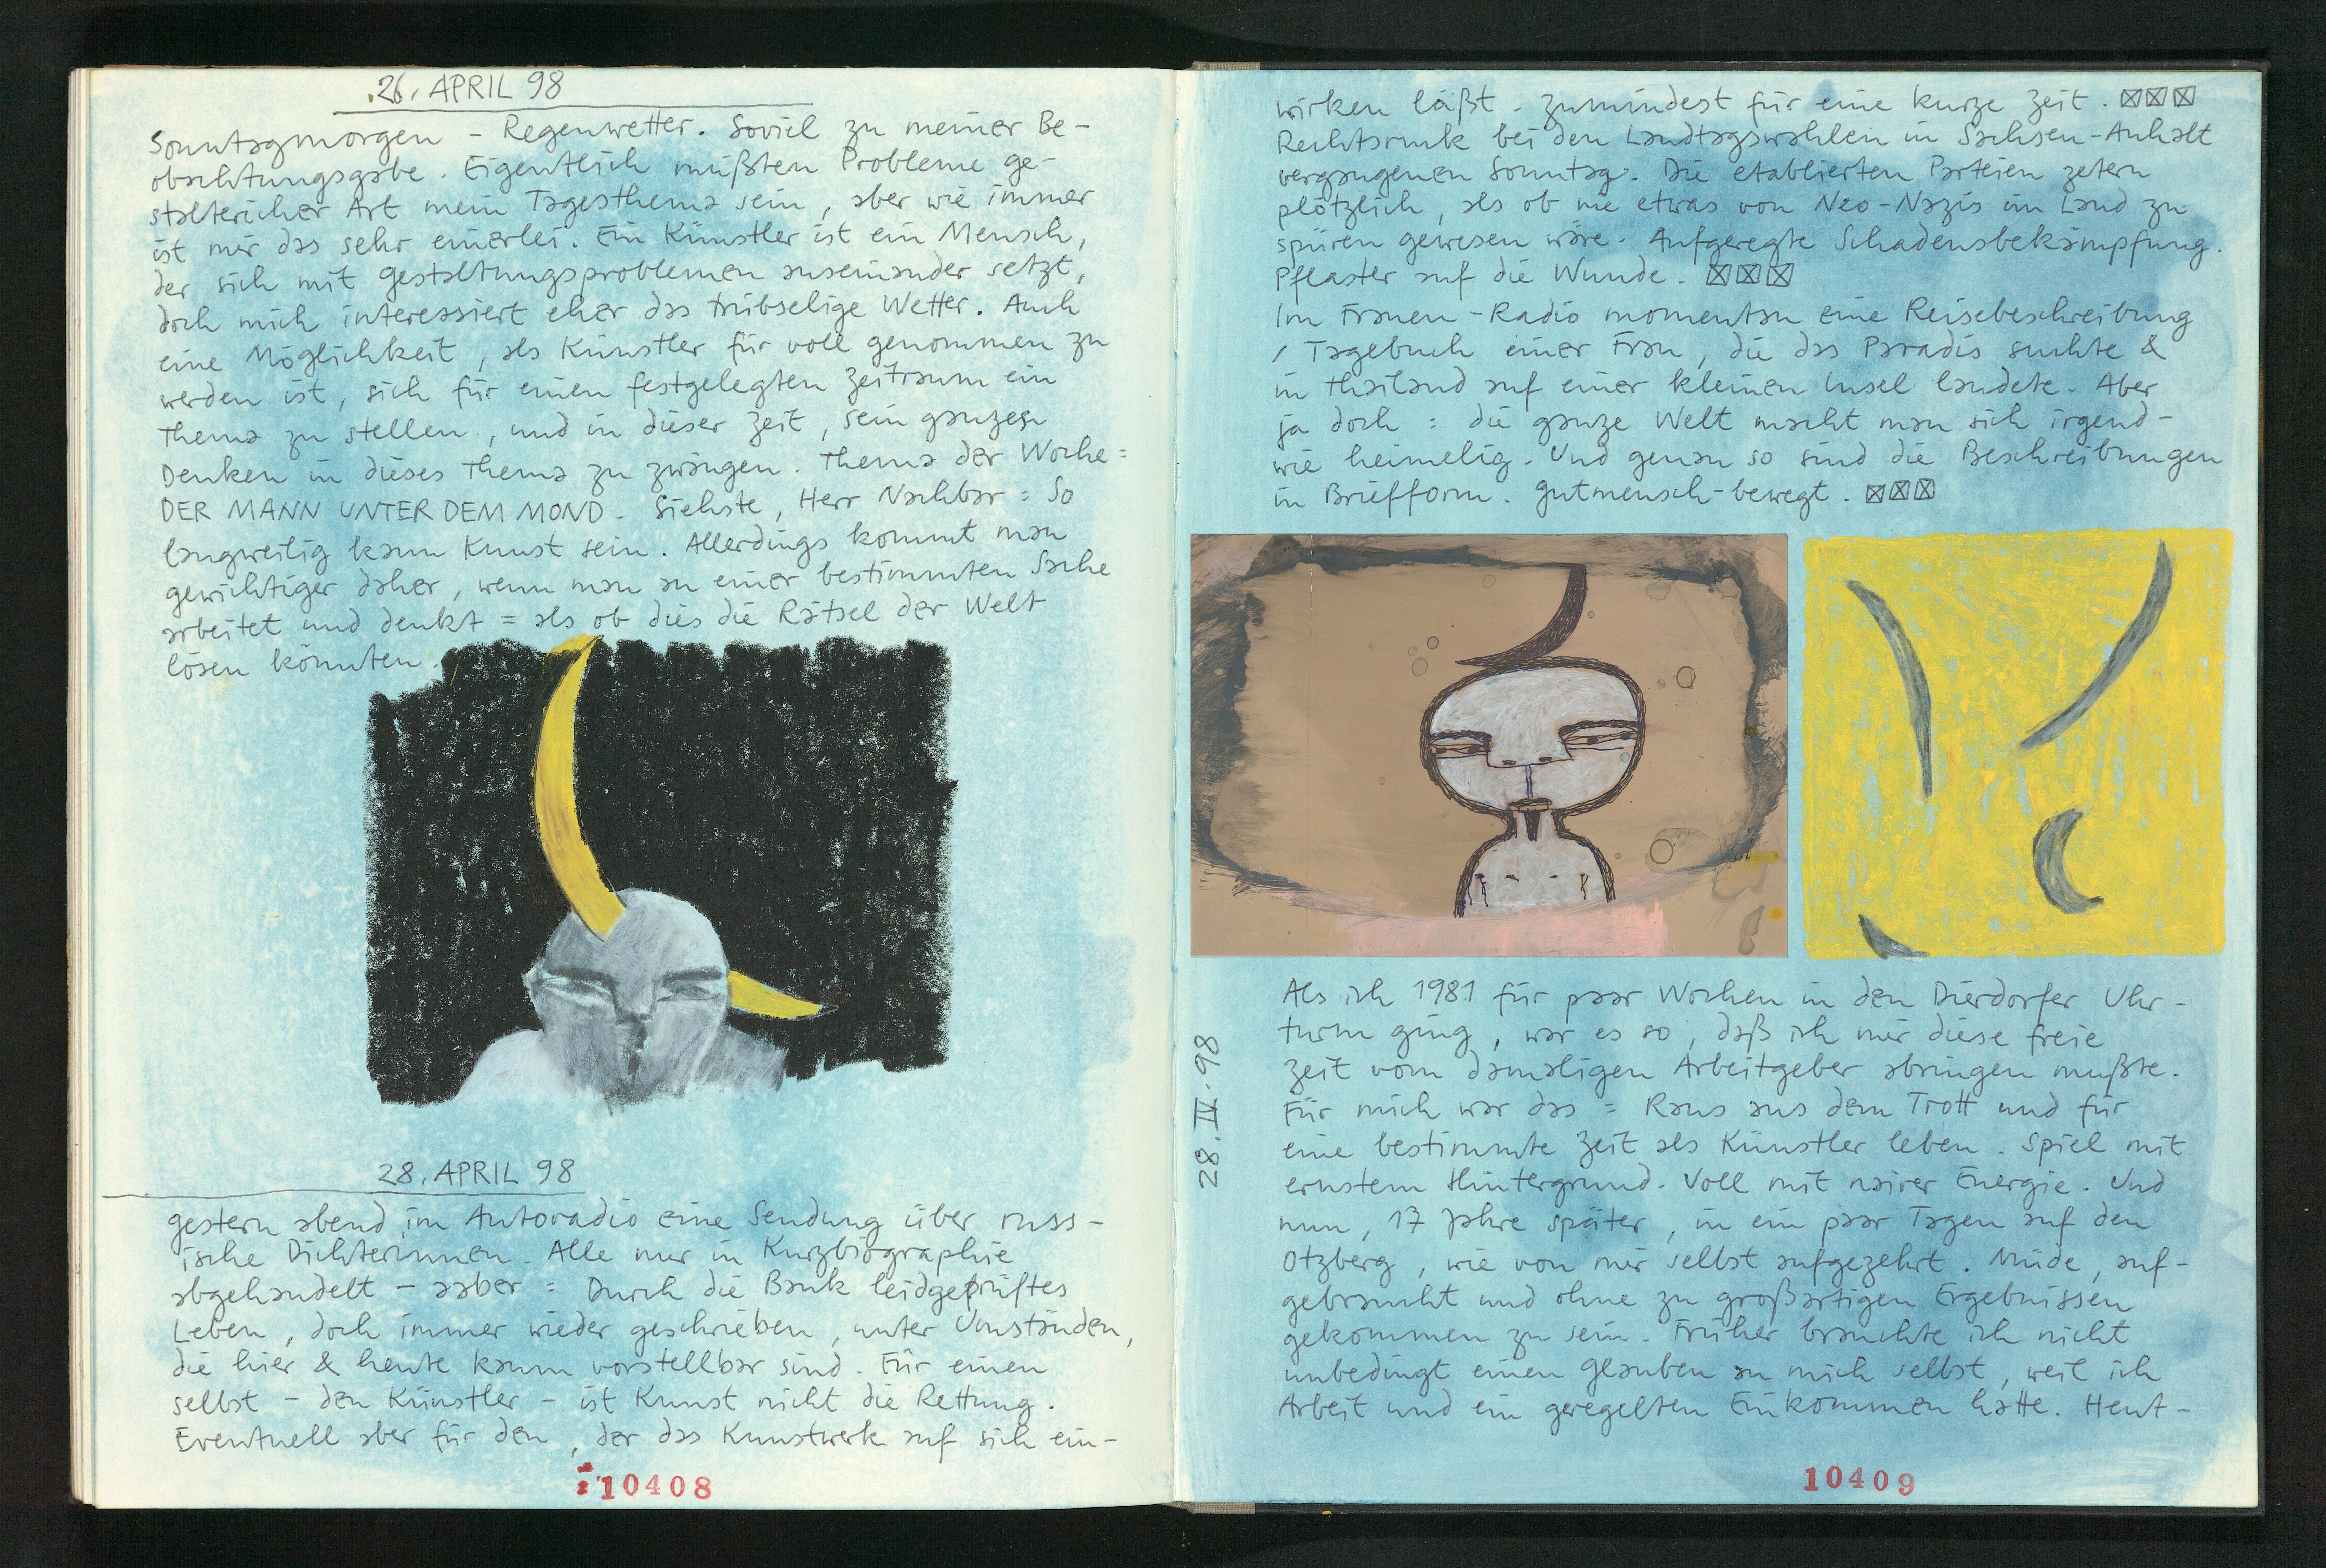 26. APRIL 98
Sonntagmorgen – Regenwetter. Soviel zu meiner Be-
obachtungsgabe. Eigentlich müßten Probleme ge-
stalterischer Art mein Tagesthema sein, aber wie immer
ist mir das sehr einerlei. Ein Künstler ist ein Mensch,
der sich mit Gestaltungsproblemen auseinander setzt,
doch mich interessiert eher das trübselige Wetter. Auch
eine Möglichkeit, als Künstler für voll genommen zu
werden ist, sich für einen festgelegten Zeitraum ein
Thema zu stellen, und in dieser Zeit, sein ganzes
Denken in dieses Thema zu zwängen. Thema der Woche:
DER MANN UNTER DEM MOND. Siehste, Herr Nachbar: So
langweilig kann Kunst sein. Allerdings kommt man
gewichtiger daher, wenn man an einer bestimmten Sache
arbeitet und denkt = als ob dies die Rätsel der Welt
lösen könnten.
28. APRIL 98
Gestern abend im Autoradio eine Sendung über russ-
ische Dichterinnen. Alle nur in Kurzbiographie
abgehandelt – aaber: Durch die Bank leidgeprüftes
Leben, doch immer wieder geschrieben, unter Umständen,
die hier & heute kaum vorstellbar sind. Für einen
selbst – den Künstler – ist Kunst nicht die Rettung.
Eventuell aber für den, der das Kunstwerk auf sich ein-
10408
wirken läßt. Zumindest für eine kurze Zeit. ☒☒☒
Rechtsruck bei den Landtagswahlen in Sachsen-Anhalt
vergangenen Sonntag. Die etablierten Parteien zetern
plötzlich, als ob nie etwas von Neo-Nazis im Land zu
spüren gewesen wäre. Aufgeregte Schadensbekämpfung.
Pflaster auf die Wunde. ☒☒☒
Im Frauen-Radio momentan eine Reisebeschreibung
/ Tagebuch einer Frau, die das Paradis suchte &
in Thailand auf einer kleinen Insel landete. Aber
ja doch: die ganze Welt macht man sich irgend-
wie heimelig. Und genau so sind die Beschreibungen
in Briefform. Gutmensch-bewegt. ☒☒☒
28.IV.98
Als ich 1981 für paar Wochen in den Dierdorfer Uhr-
turm ging, war es so, daß ich mir diese freie
Zeit vom damaligen Arbeitgeber abringen mußte.
Für mich war das: Raus aus dem Trott und für
eine bestimmte Zeit als Künstler leben. Spiel mit
ernstem Hintergrund. Voll mit naiver Energie. Und
nun, 17 Jahre später, in ein paar Tagen auf den
Otzberg, wie von mir selbst aufgezehrt. Müde, auf-
gebraucht und ohne zu großartigen Ergebnissen
gekommen zu sein. Früher brauchte ich nicht
unbedingt einen Glauben an mich selbst, weil ich
Arbeit und ein geregelten Einkommen hatte. Heut-
10409